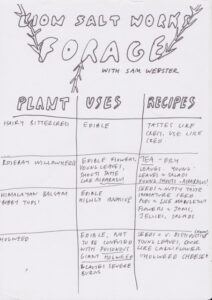 LION SALT WORKS
FORAGE
WITH SAM WEBSTER
PLANT
USES
RECIPES
HAIRY BITTERCRESS
EDIBLE
TASTES LIKE
CRESS, USE LIKE
CRESS
ROSEBAY WILLOWHERB
EDIBLE FLOWERS,
YOUNG LEAVES,
SHOOTS TASTE
LIKE ASPARAGUS
TEA - DRY
LEAVES. YOUNG
LEAVES = SALAD
YOUNG SHOOTS = ASPARAGUS
HIMALAYAN BALSAM
EDIBLE
HIGHLY INVASIVE
SEEDS = NUTTY TASTE
IMMATURE SEED
PODS = LIKE MANGETOUT
FLOWERS = JAMS,
JELLIES, SALADS
HOGWEED
EDIBLE, NOT
TO BE CONFUSED
WITH POISONOUS
GIANT HOGWEED
CAUSES SEVERE
BURNS
YOUNG LEAVES, COOK
LIKE CAULIFLOWER
"HOGWEED CHEESE"